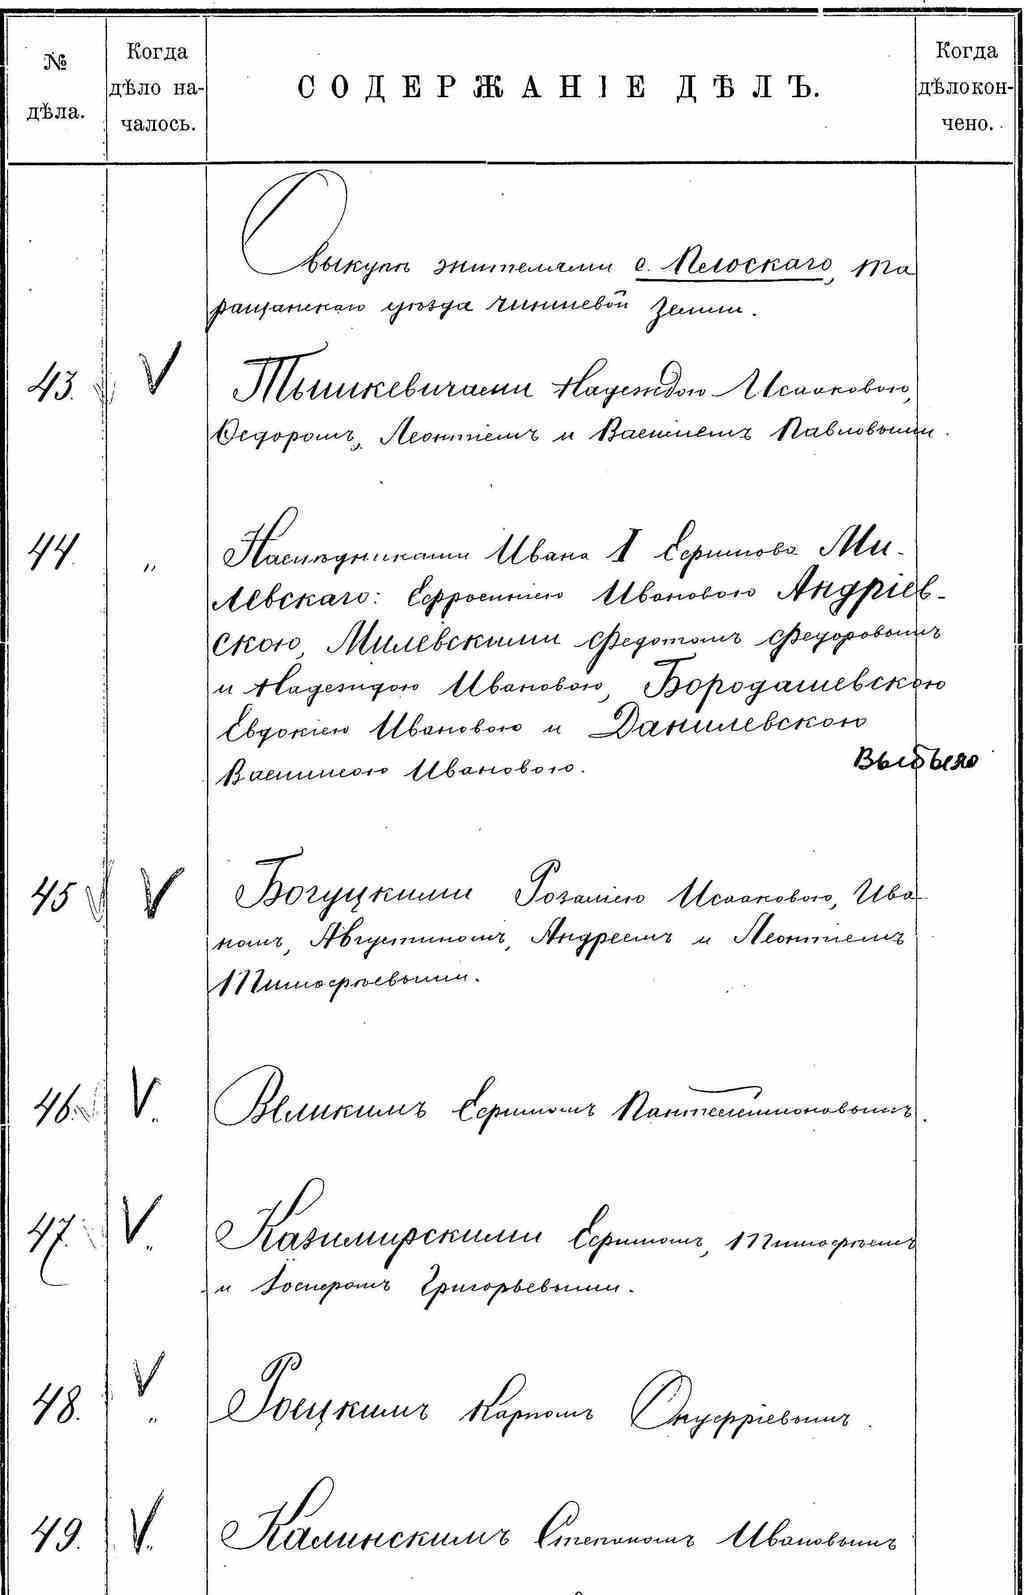 № дѣла.
Когда дѣло на-чалось.
СОДЕРЖАНІЕ ДѢЛЪ.
Когда дѣло кон-чено.
О выкупѣ жителями с. Лелоскаго, Та
ращанскаго уѣзда чиншевой земли.
43. V Тышкевичами Надеждою Исааковою,
Ѳедоромъ, Леонтіемъ и Василіемъ Павловыми.
44. „ Наслѣдниками Ивана I Ефимова Ми-
левскаго: Ефросиніею Ивановою Андріев-
скою, Милевскими Федотомъ Федоровымъ
и Надеждою Ивановою, Бородашевскою
Евдокіею Ивановою и Данилевскою
Василисою Ивановою. Выбыло
45 V Богуцкими Розаліею Исааковою, Ива
номъ, Августиномъ, Андреемъ и Леонтіемъ
Тимофѣевыми.
46. V „ Великимъ Ефимомъ Пантелеимоновымъ.
47. V „ Казимирскими Ефимомъ, Тимофѣемъ
и Іосифомъ Григорьевыми.
48. V „ Роецкимъ Карпомъ Онуфріевымъ.
49. V „ Калинскимъ Степаномъ Ивановымъ